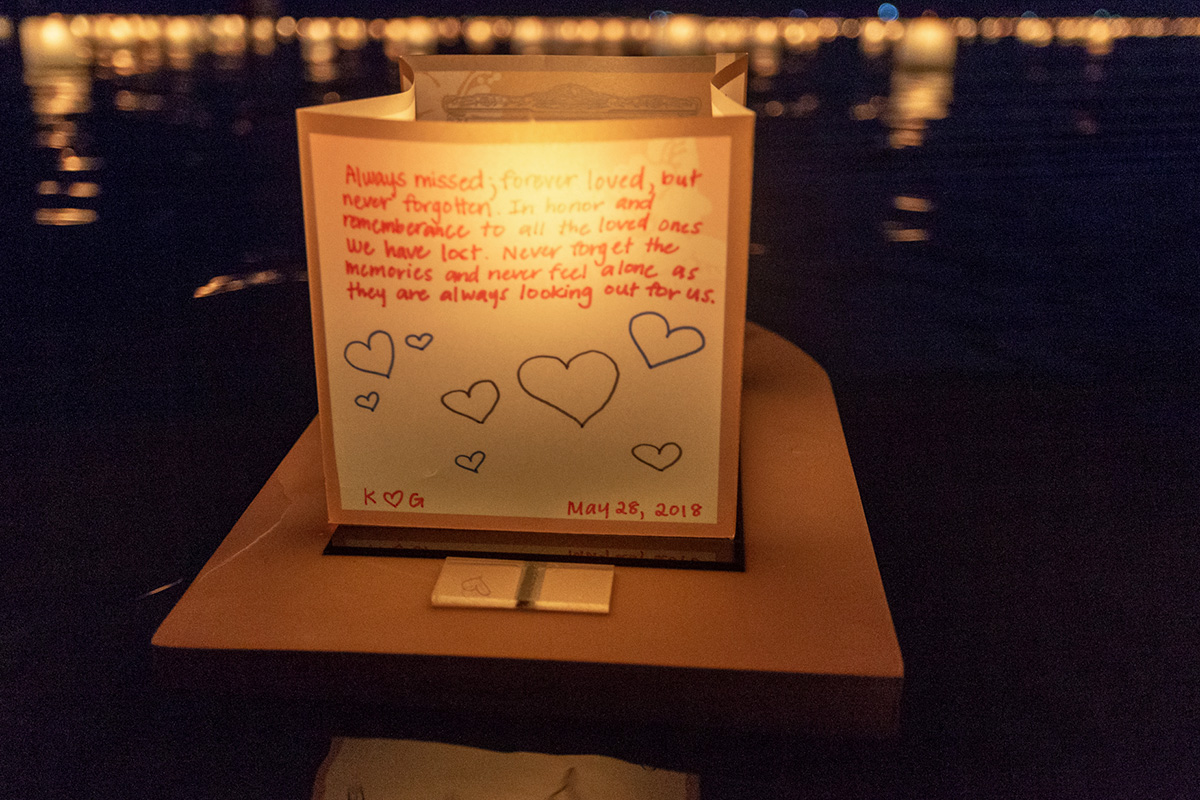 Always missed, forever loved, but
never forgotten. In honor and
rememberance to all the loved ones
we have lost. Never forget the
memories and never feel alone as
they are always looking out for us.
K ♡ G
May 28, 2018